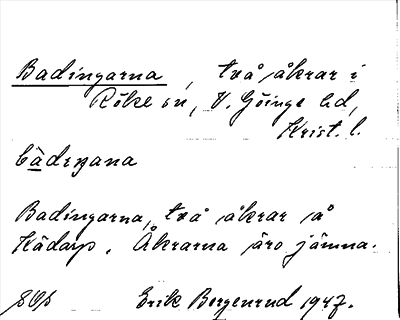 Badingarna, två åkrar i
Röke sn, V. Göinge hd,
Krist. l.
Badingarna, två åkrar å
Hädarp. Åkrarna äro jämna.
Erik Bergenrud 1947.